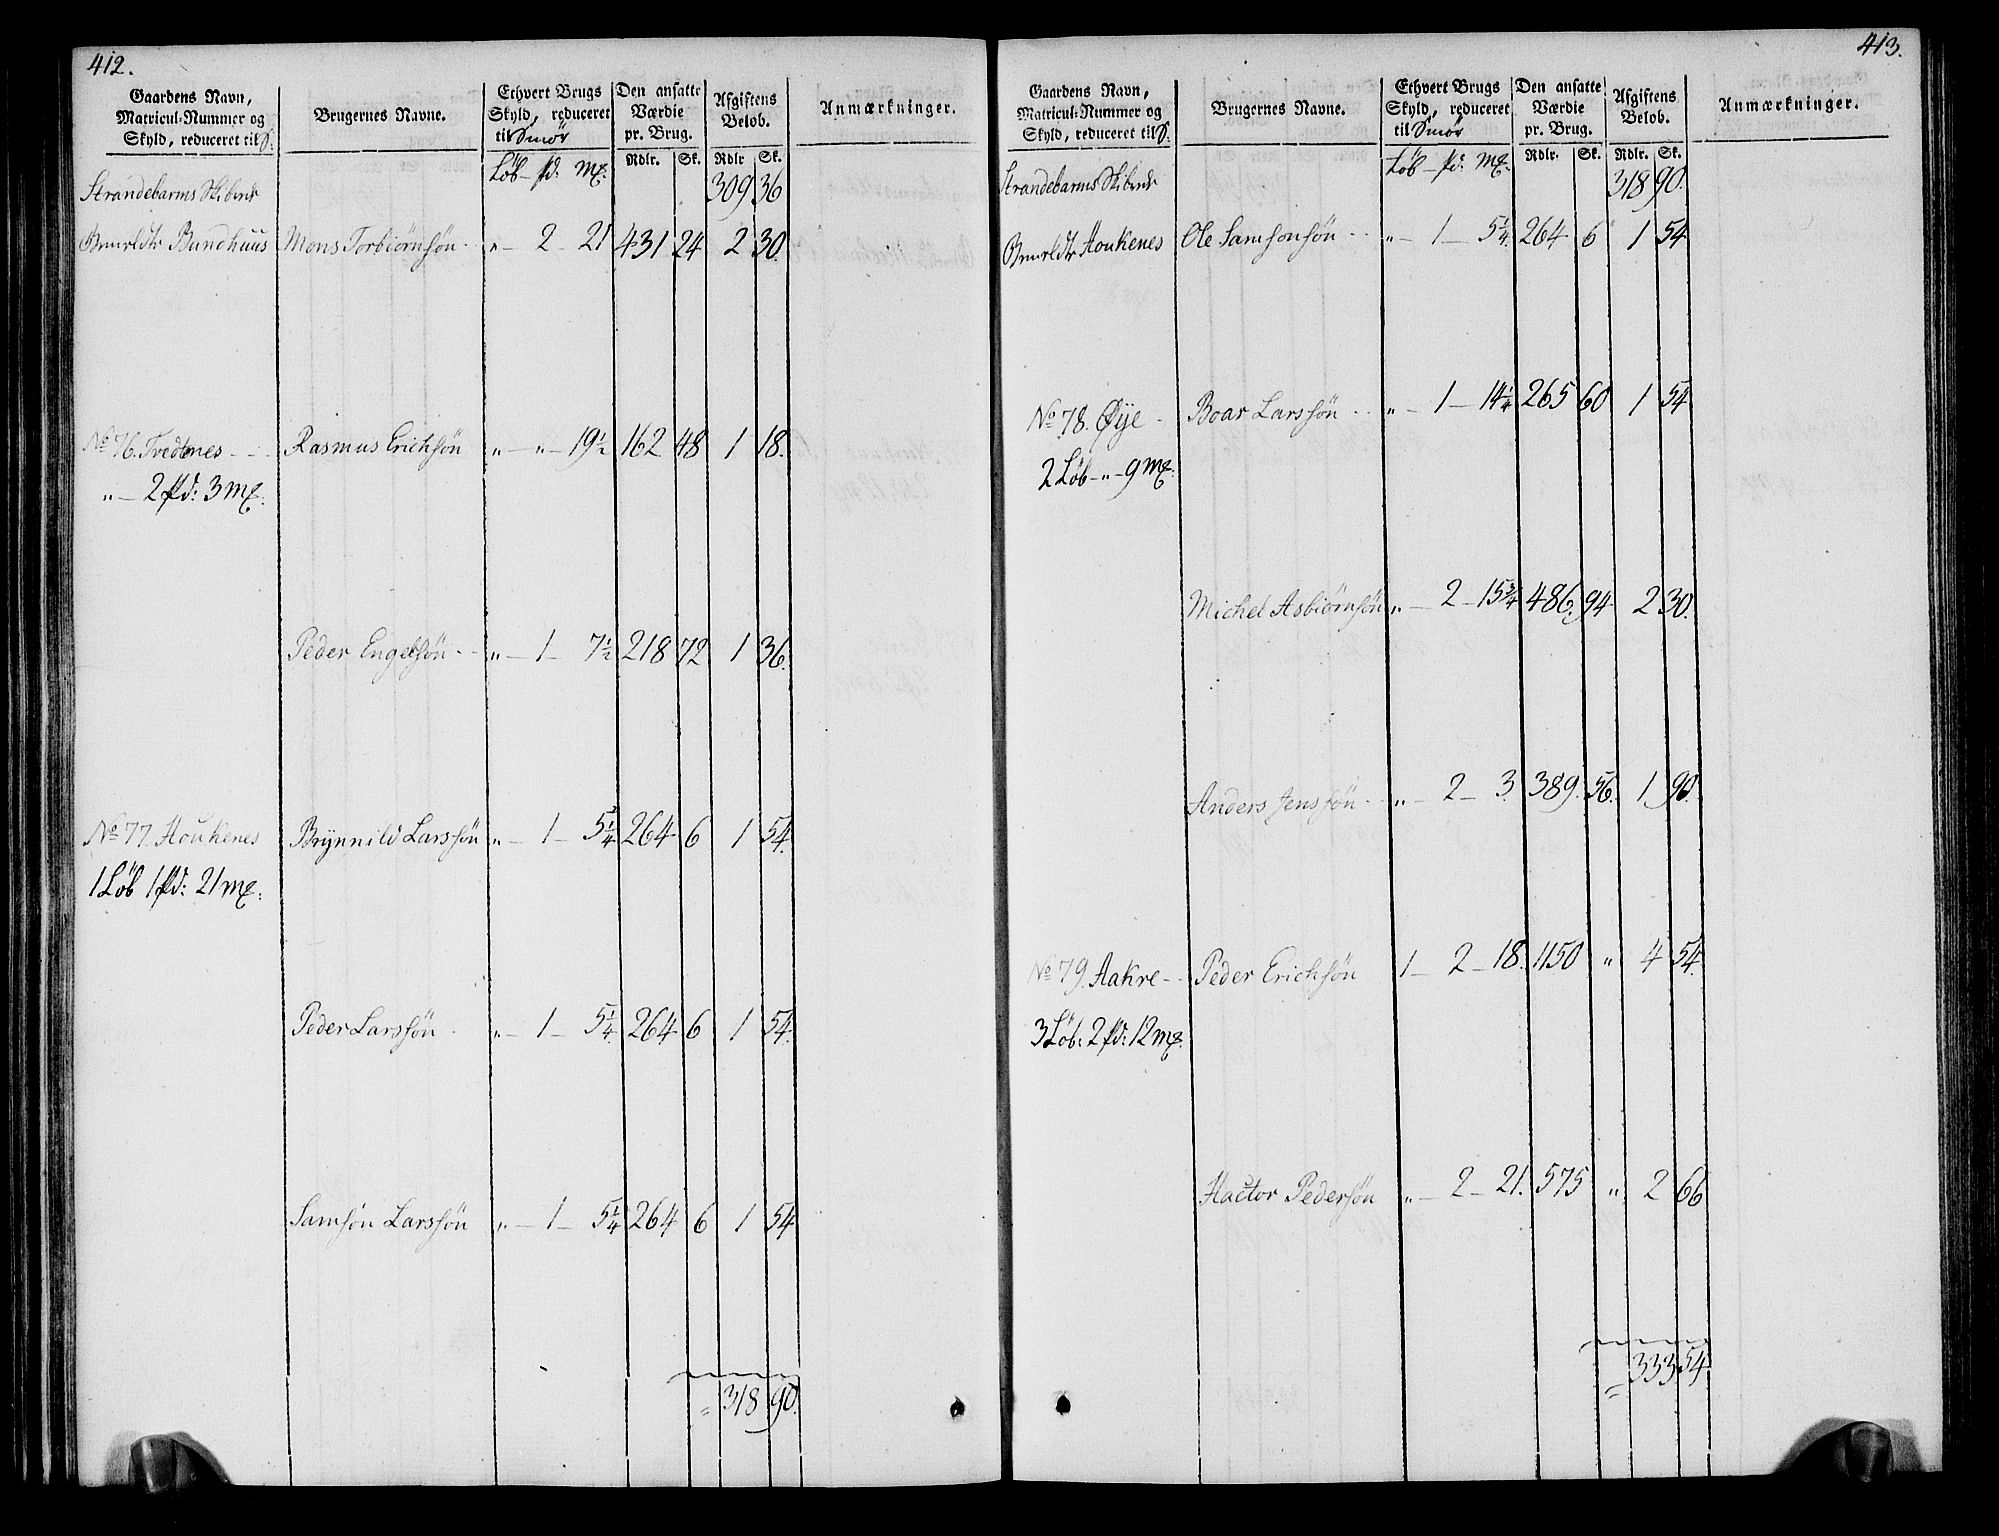 412.
Gaardens Navn, Matricul-Nummer og Skyld, reduceret til S.
Brugernes Navne.
Ethvert Brugs Skyld, reduceret til Smør
Den ansatte Værdie pr. Brug.
Afgiftens Beløb.
Anmærkninger.
Løb – pd: mƺ. Rdlr. Sk. Rdlr Sk.
Strandebarms Skibrede 309 36
Bundhuus Mons Torbiørnsøn „ – 2 – 21 431 24 2 30.
No 76. Tvedtnes Rasmus Erichsøn „ – „ – 19½ 162 48 1 18.
„ – 2 pd: 3 mƺ.
Peder Engelsøn „ – 1 – 7½ 218 72 1 36.
No 77. Houkenes Brynnild Larssøn „ – 1 – 5¼ 264 6 1 54.
1 Løb 1 pd: 21 mƺ.
Peder Larssøn „ – 1 – 5¼ 264 6 1 54.
Samson Larssøn „ – 1 – 5¼ 264 6 1 54
= 318 90.
413.
Gaardens Navn, Matricul-Nummer og Skyld, reduceret til S.
Brugernes Navne.
Ethvert Brugs Skyld, reduceret til Smør
Den ansatte Værdie pr. Brug.
Afgiftens Beløb.
Anmærkninger.
Løb – pd: mƺ. Rdlr. Sk. Rdlr. Sk.
Strandebarms Skibrede 318 90.
Houkenes Ole Samsonsøn „ – 1 – 5¼ 264 6 1 54
No 78. Øye Boar Larssøn „ – 1 – 14¼ 265 60 1 54
2 Løb – „ – 9 mƺ.
Michel Asbiørnsøn „ – 2 – 15¾ 486 94 2 30.
Anders Jenssøn „ – 2 – 3. 389. 56. 1 90.
No 79. Aakre Peder Erichsøn 1 – 2 – 18. 1150 „ 4 54
3 Løb: 2 pd: 12 mƺ.
Hactor Pedersøn „ – 2 – 21. 575 „ 2 66
= 333 54